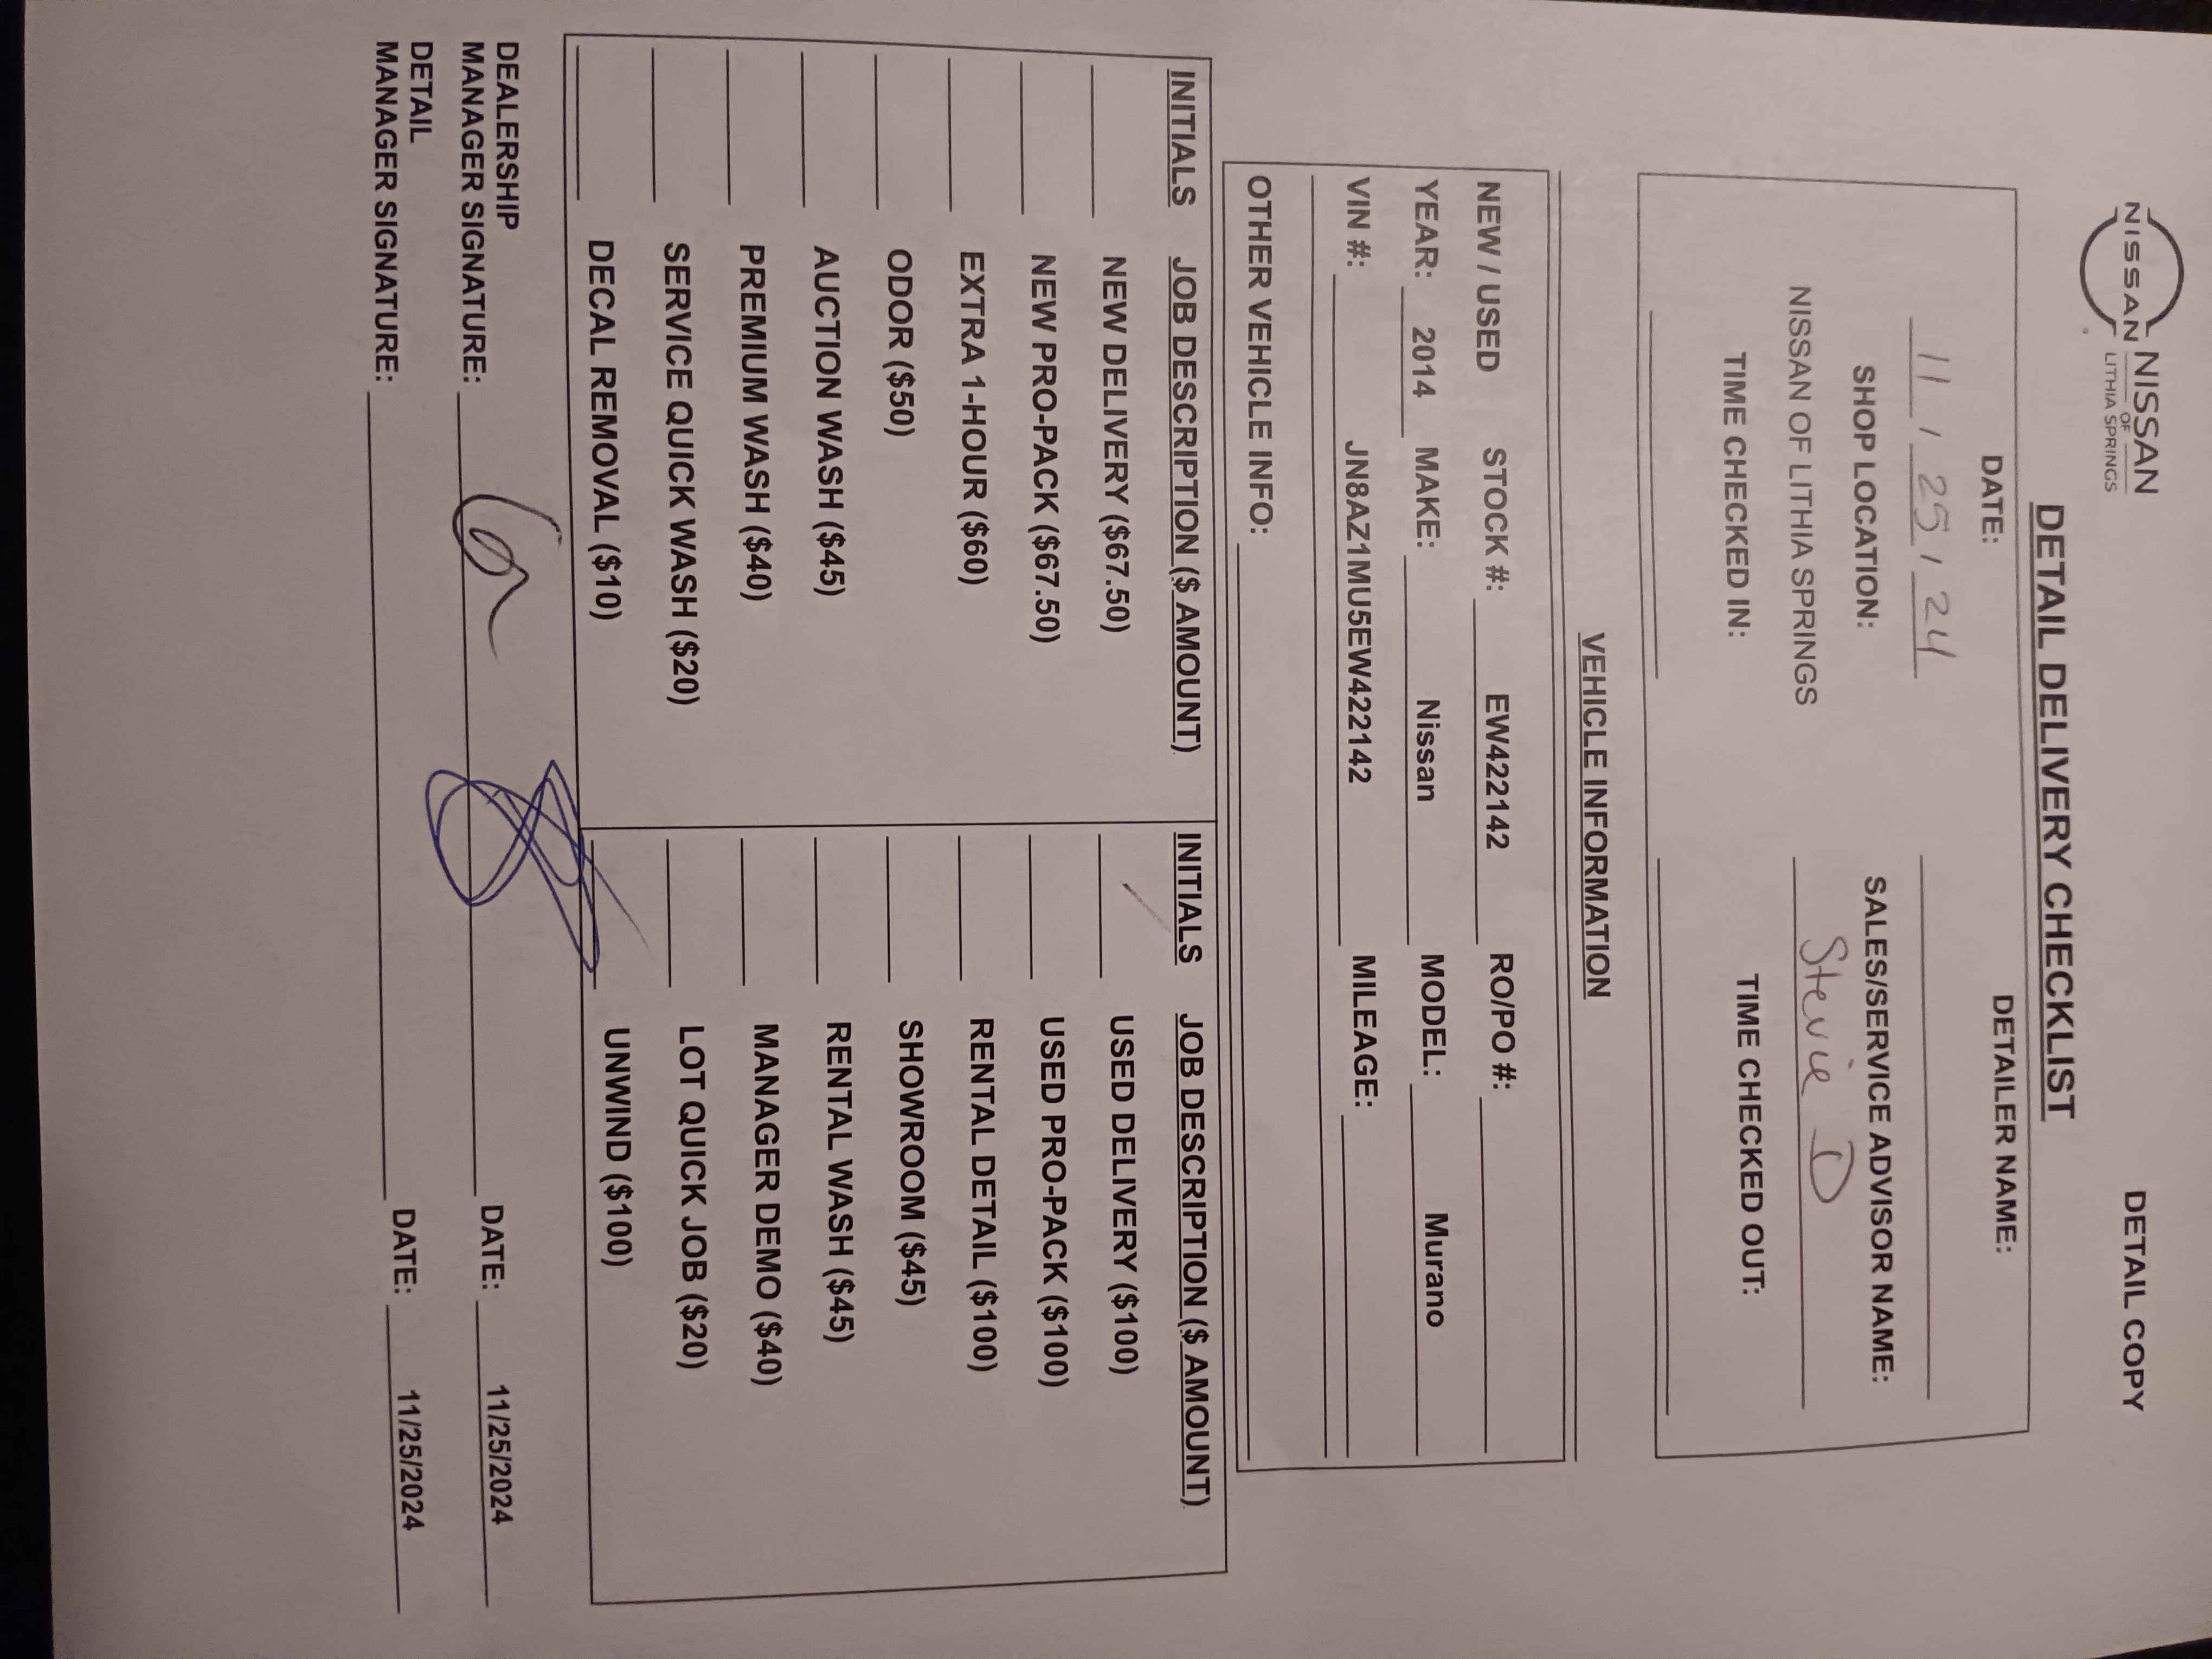 DETAIL COPY
NISSAN NISSAN
OF
LITHIA SPRINGS
DETAIL DELIVERY CHECKLIST
DATE: DETAILER NAME:
11 / 25 / 24
SHOP LOCATION: SALES/SERVICE ADVISOR NAME:
NISSAN OF LITHIA SPRINGS Stevie D
TIME CHECKED IN: TIME CHECKED OUT:
VEHICLE INFORMATION
NEW / USED STOCK #: EW422142 RO/PO #:
YEAR: 2014 MAKE: Nissan MODEL: Murano
VIN #: JN8AZ1MU5EW422142 MILEAGE:
OTHER VEHICLE INFO:
INITIALS JOB DESCRIPTION ($ AMOUNT) INITIALS JOB DESCRIPTION ($ AMOUNT)
NEW DELIVERY ($67.50) USED DELIVERY ($100)
NEW PRO-PACK ($67.50) USED PRO-PACK ($100)
EXTRA 1-HOUR ($60) RENTAL DETAIL ($100)
ODOR ($50) SHOWROOM ($45)
AUCTION WASH ($45) RENTAL WASH ($45)
PREMIUM WASH ($40) MANAGER DEMO ($40)
SERVICE QUICK WASH ($20) LOT QUICK JOB ($20)
DECAL REMOVAL ($10) UNWIND ($100)
DEALERSHIP
MANAGER SIGNATURE: DATE: 11/25/2024
DETAIL
MANAGER SIGNATURE: DATE: 11/25/2024